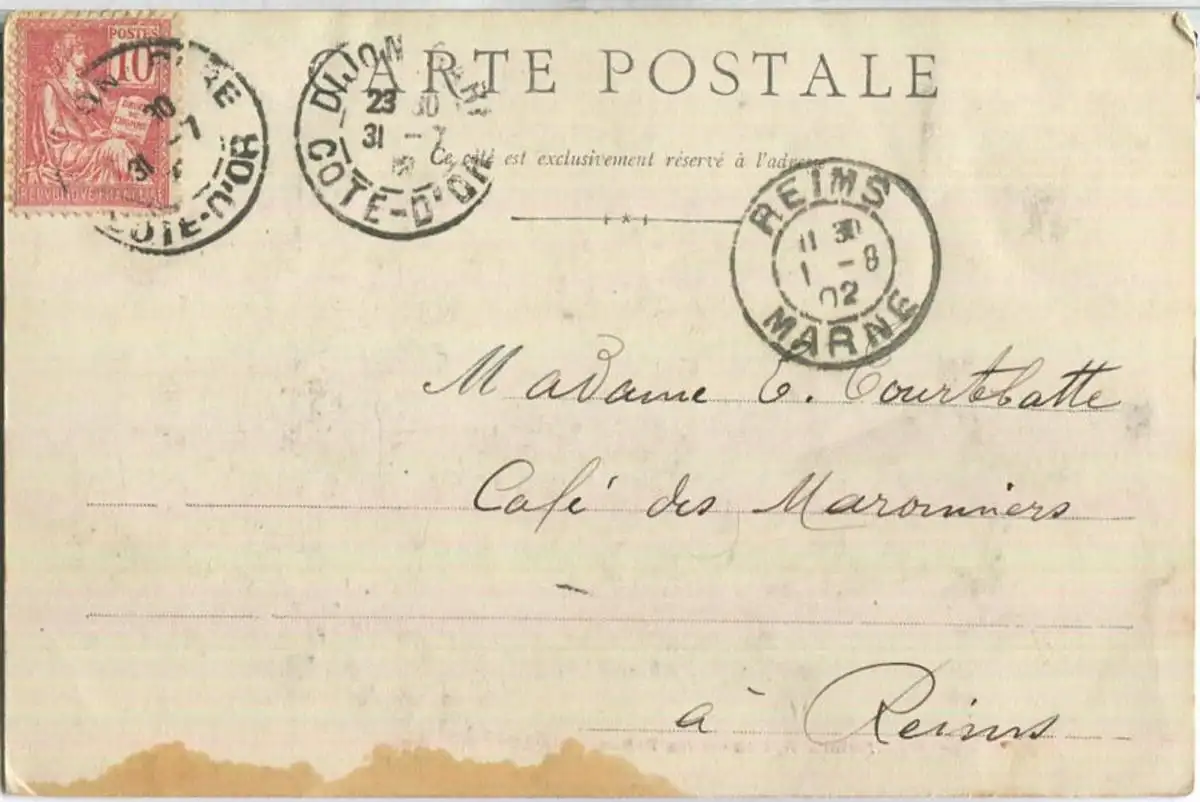 POSTES
10
RÉPUBLIQUE FRANÇAISE
GARE
30
31 -7
COTE-D'OR
DIJON GARE
23 30
31 -7
COTE-D'OR
CARTE POSTALE
Ce côté est exclusivement réservé à l'adresse
REIMS
11 30
1 -8
02
MARNE
Madame E. Courtebatte
Café des Maronniers
à Reims